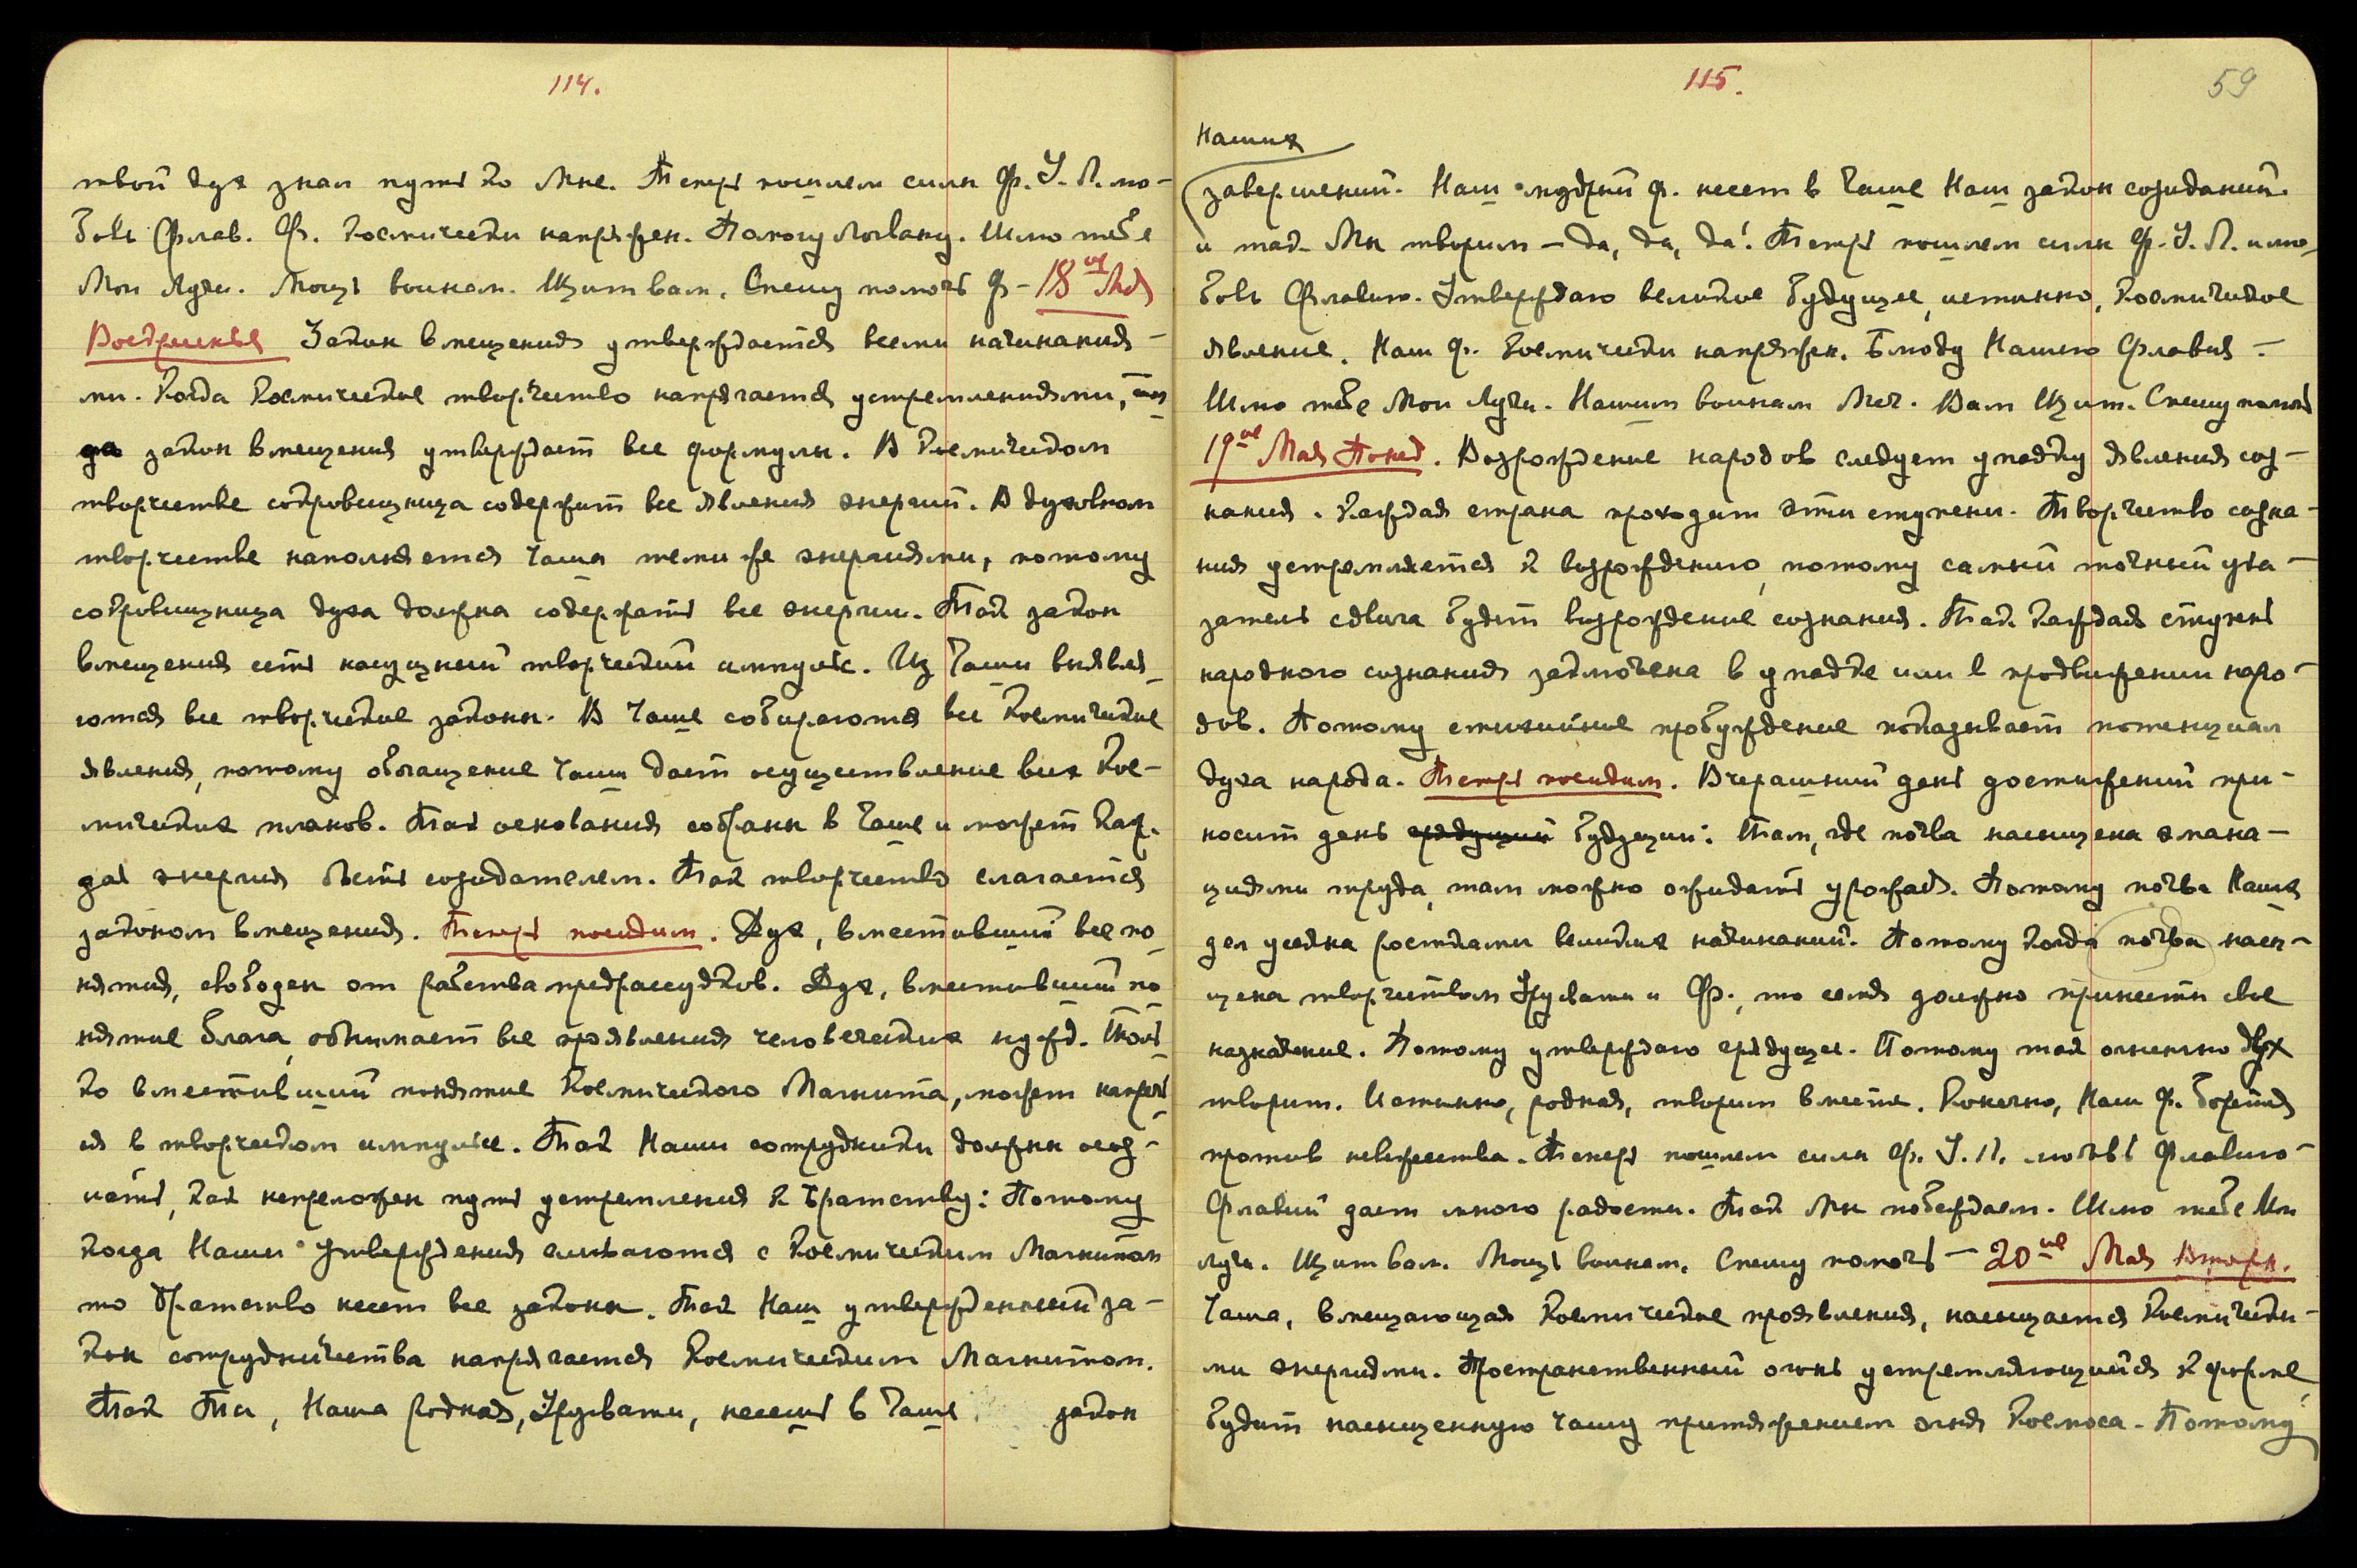 114.
твой дух знал путь ко Мне. Теперь пошлем силы Ф. У. Л. лю-
бовь Флав. Ф. космически напряжен. Помогу Логвану. Шлю тебе
Мои Лучи. Мощь воинам. Щит вам. Спешу помочь Ф – 18ое Мая
Воскресенье Закон вмещения утверждается всеми начинания-
ми. Когда космическое творчество напрягается устремлениями, тог
да закон вмещения утверждает все формулы. В космическом
творчестве сокровищница содержит все явления энергий. В духовном
творчестве наполняется чаша теми же энергиями, потому
сокровищница духа должна содержать все энергии. Так закон
вмещения есть насущный творческий импульс. Из Чаши выявля-
ются все творческие законы. В Чаше собираются все Космические
явления, потому обогащение чаши дает осуществление всех Кос-
мических планов. Так основания собраны в Чаше и может каж-
дая энергия быть созидателем. Так творчество слагается
законом вмещения. Теперь посидим. Дух, вместивший все по
нятия, свободен от рабства предрассудков. Дух, вместивший по
нятие блага, обнимает все проявления человеческих нужд. Толь
ко вместивший понятие Космического Магнита, может напрячь
ся в творческом импульсе. Так Наши сотрудники должны осоз-
нать, как непреложен путь устремления к Братству: Потому
когда Наши утверждения сливаются с Космическим Магнитом
то Братство несет все законы. Так Наш утвержденный за-
кон сотрудничества напрягается Космическим Магнитом.
Так Ты, Наша родная, Урусвати, несешь в Чаше закон
115.
59
Наших
завершений. Наш мудрый Ф. несет в Чаше Наш закон созиданий.
и так Мы творим – да, да, да! Теперь пошлем силы Ф. У. Л. и лю-
бовь Флавию. Утверждаю великое будущее, истинно, Космическое
явление. Наш Ф. Космически напряжен. Блюду Нашего Флавия –
Шлю тебе Мои Лучи. Нашим воинам Меч. Вам Щит. Спешу помочь
19ое Мая Понед. Возрождение народов следует упадку явления соз-
нания. Каждая страна проходит эти ступени. Творчество созна-
ния устремляется к возрождению, потому самый точный ука-
затель сдвига будет возрождение сознания. Так каждая ступень
народного сознания заключена в упадке или в продвижении наро-
дов. Потому стихийное пробуждение показывает потенциал
духа народа. Теперь посидим. Вчерашний день достижений при-
носит день грядущий будущий: Там, где почва насыщена эмана-
циями труда, там можно ожидать урожая. Потому почва Наших
дел усеяна ростками великих начинаний. Потому когда почва насы-
щена творчеством Урусвати и Ф., то семя должно принести свое
назначение. Потому утверждаю грядущее. Потому так огненно дух
творит. Истинно, родная, творим вместе. Конечно, Наш Ф. борется
против невежества. Теперь пошлем силы Ф. У. Л. любовь Флавию –
Флавий дает много радости. Так Мы побеждаем. Шлю тебе Мои
лучи. Щит вам. Мощь воинам. Спешу помочь – 20ое Мая Вторн.
Чаша, вмещающая Космические проявления, насыщается Космически-
ми энергиями. Пространственный огонь устремляющийся к форме,
будит насыщенную чашу притяжением огня Космоса. Потому